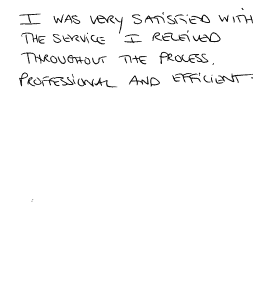 I WAS VERY SATISFIED WITH
THE SERVICE I RECEIVED
THROUGHOUT THE PROCESS.
PROFFESSIONAL AND EFFICIENT.